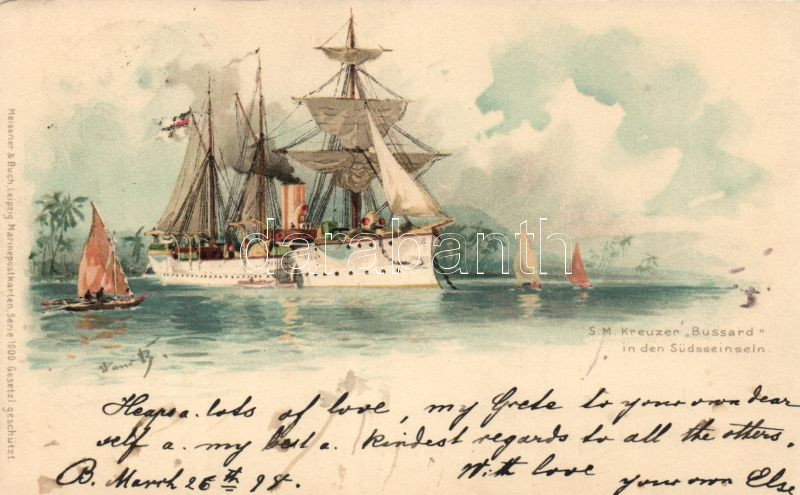 Meissner & Buch, Leipzig. Marinepostkarten, Serie 1000. Gesetzl. geschützt.
darabanth
S.M. Kreuzer „Bussard"
in den Südseeinseln.
Heaps a. lots of love, my Grete to your own dear
self a. my best a. kindest regards to all the others.
B. March 26th 98. With love your own Else